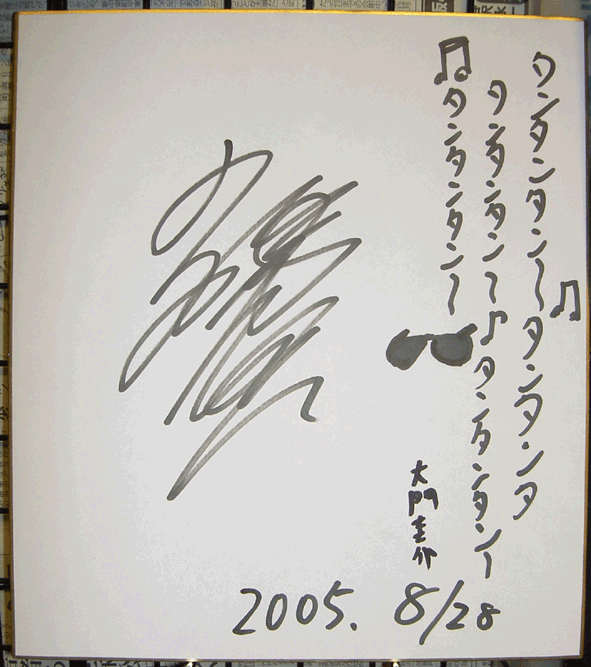 タンタンタン〜タンタンタ♫
タンタンタン〜♪タンタンタンー
♫タンタンタン〜
大門圭介
2005. 8/28